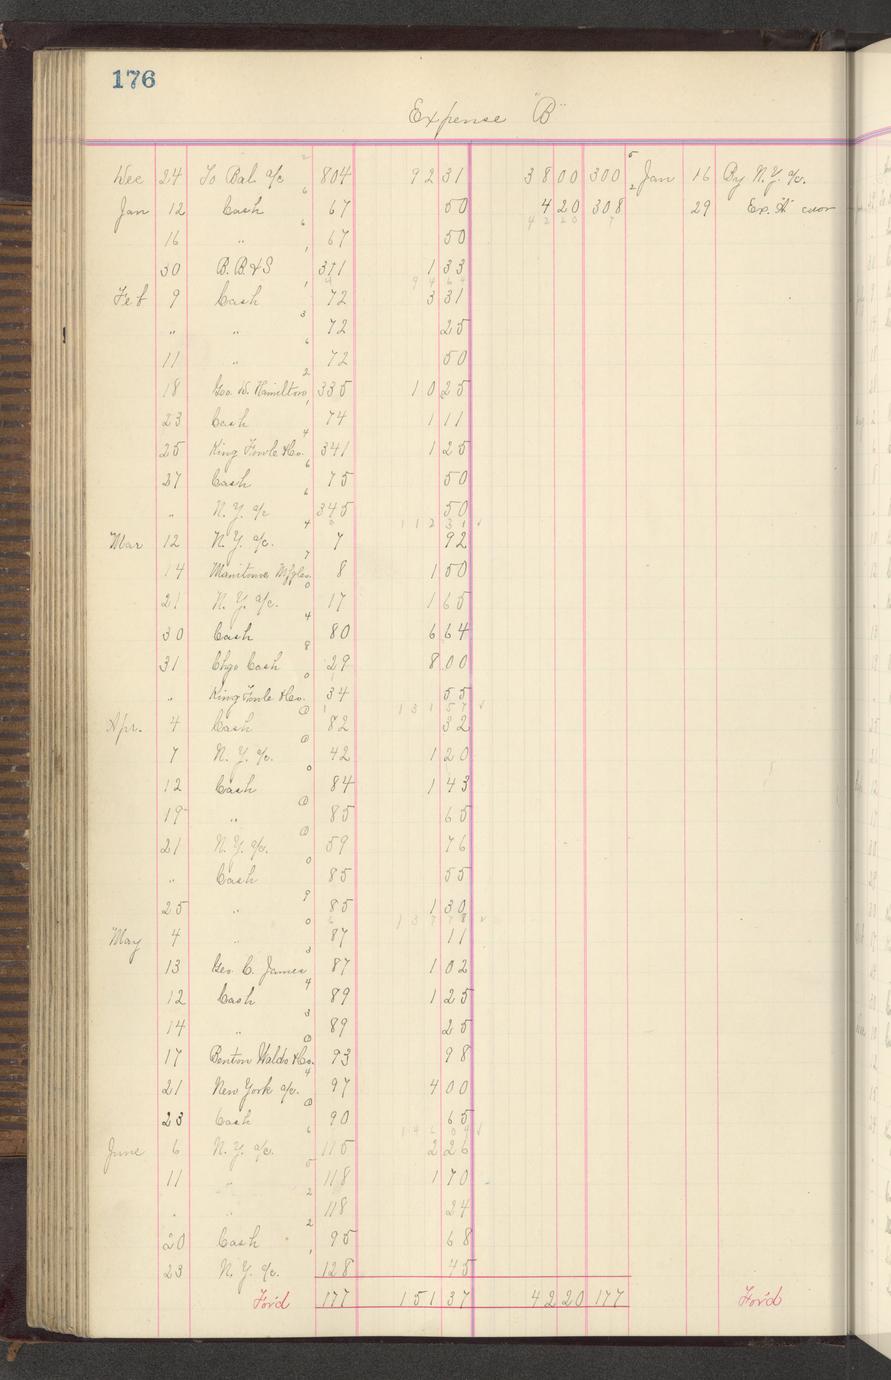 176
Expense "B"
Dec 24 To Bal. a/c 804 92 31 38 00 300 Jan 16 By N.Y. a/c.
Jan 12 Cash 67 50 4 20 308 29 Ex. "A"
16 " 67 50
30 B.B.&S 311 1 33
Feb 9 Cash 72 3 31
" " 72 25
11 " 72 50
18 Geo. W. Hamilton 335 10 25
23 Cash 74 1 11
25 King Fowle & Co. 341 1 25
27 Cash 75 50
" N.Y. a/c 345 50
112 31
Mar 12 N.Y. a/c. 7 92
14 8 1 50
21 N.Y. a/c. 17 1 65
30 Cash 80 6 64
31 Chgo Cash 29 8 00
" King Fowle & Co. 34 55
131 57
Apr. 4 Cash 82 32
7 N.Y. a/c. 42 1 20
12 Cash 84 1 43
19 " 85 65
21 N.Y. a/c. 59 76
" Cash 85 55
25 " 85 1 30
137 78
May 4 " 87 11
13 Geo. C. James 87 1 02
12 Cash 89 1 25
14 " 89 25
17 Benton Waldo & Co. 93 98
21 New York a/c. 97 4 00
23 Cash 90 65
146 04
June 6 N.Y. a/c. 115 2 26
11 " 118 1 70
" " 118 24
20 Cash 95 68
23 N.Y. a/c. 128 45
For'd 177 151 37 42 20 177 For'd